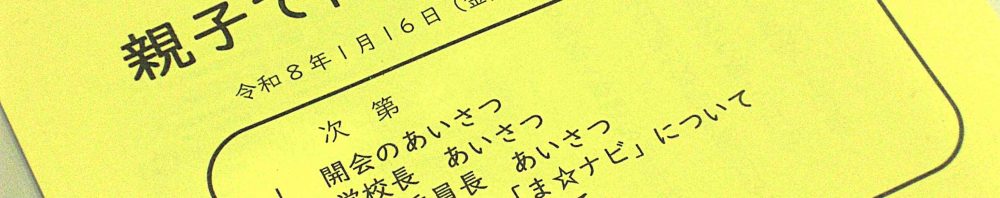 親子で
令和8年1月16日（金
次 第
1 開会のあいさつ
学校長 あいさつ
委員長 あいさつ
「ま☆ナビ」について